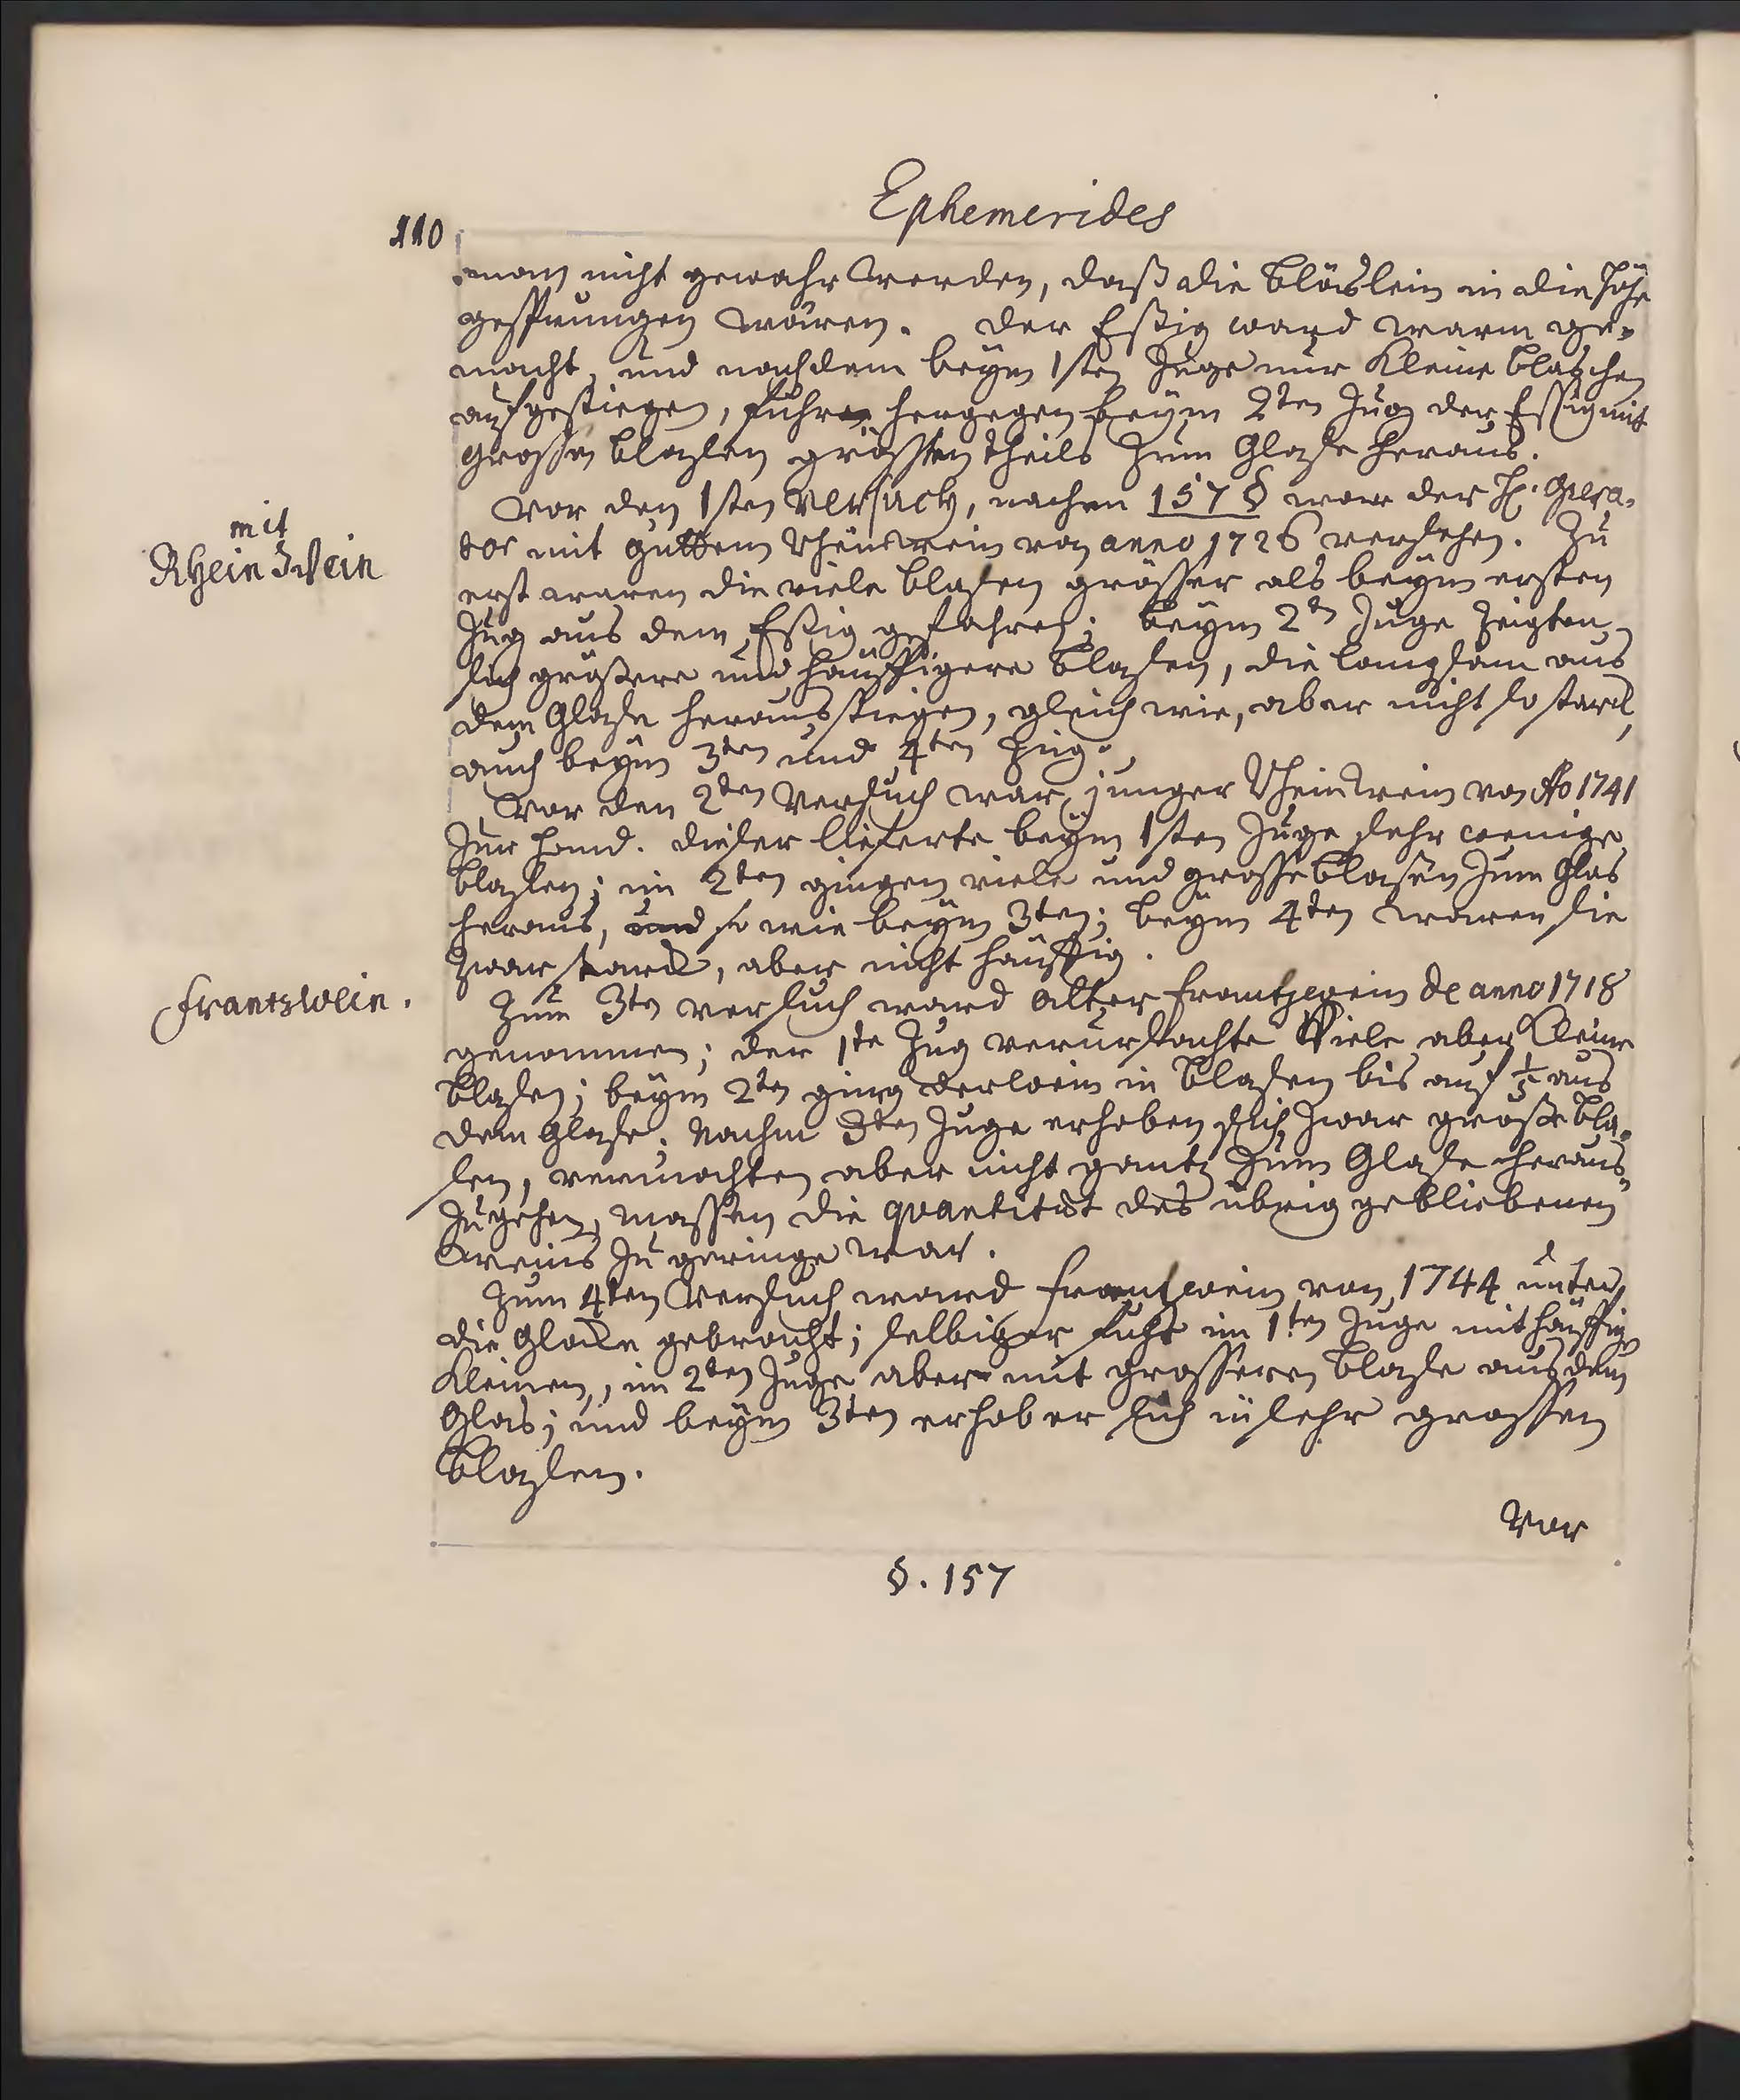 Ephemerides
110
man nicht gewahr werden, daß die Bläslein in die Höhe
gesprungen wären. Der Eßig ward warm ge-
macht, und nachdem beym 1sten Zuge nur kleine Blaschen
aufgestiegen, fuhr hergegen beym 2ten Zug der Essig mit
grossen Blasen grösten theils zum Glase heraus.
mit
RheinsWein
Vor den 1sten Versuch, nachm 157 § war der H. Opera-
tor mit guttem Rheinwein von anno 1726 versehen. Zu
erst waren die viele Blasen grösser als beym ersten
Zug aus dem Eßig gefahren; beym 2ten Zuge zeigten
sich größere und häuffigere Blasen, die langsam aus
dem Glase herausstiegen, gleich wie, aber nicht so starck,
auch beym 3ten und 4ten Zug.
Vor den 2ten Versuch war junger Rheinwein von Ao 1741
zur Hand. dieser lieferte beym 1sten Zuge sehr wenige
Blasen; im 2ten gingen viele und grosse Blasen zum Glas
heraus, und so wie beym 3ten; beym 4ten waren sie
zwar starck, aber nicht häuffig.
Frantswein.
Zum 3ten Versuch ward alter Frantzwein de anno 1718
genommen; der 1ste Zug verursachte Viele aber kleine
Blasen; beym 2ten ging der Wein in Blasen bis auf 1/3 aus
dem Glase. Nachm 3ten Zuge erhoben sich zwar große Bla-
sen, vermochten aber nicht gantz zum Glase heraus-
zugehen, massen die quantität des übrig gebliebenen
Weins zu geringe war.
Zum 4ten Versuch ward Frantzwein von 1744 unter
die Glocke gebracht; selbiger fuhr im 1ten Zuge mit häuffig
kleinen, im 2ten Zuge aber mit grosseren Blase aus dem
Glas; und beym 3ten erhob er sich in sehr grossen
Blasen.
Vor
§. 157